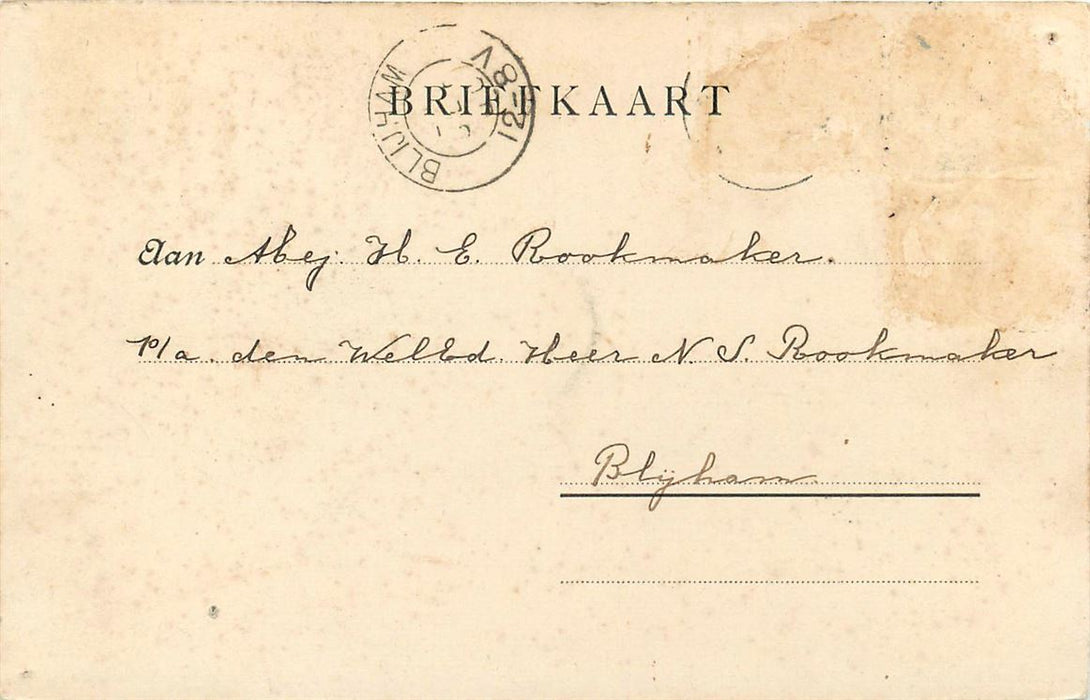 BLIJHAM
8V
12-
BRIEFKAART
Aan Mej. H. E. Rookmaker.
P/a. den WelEd. Heer N. S. Rookmaker
Blijham.